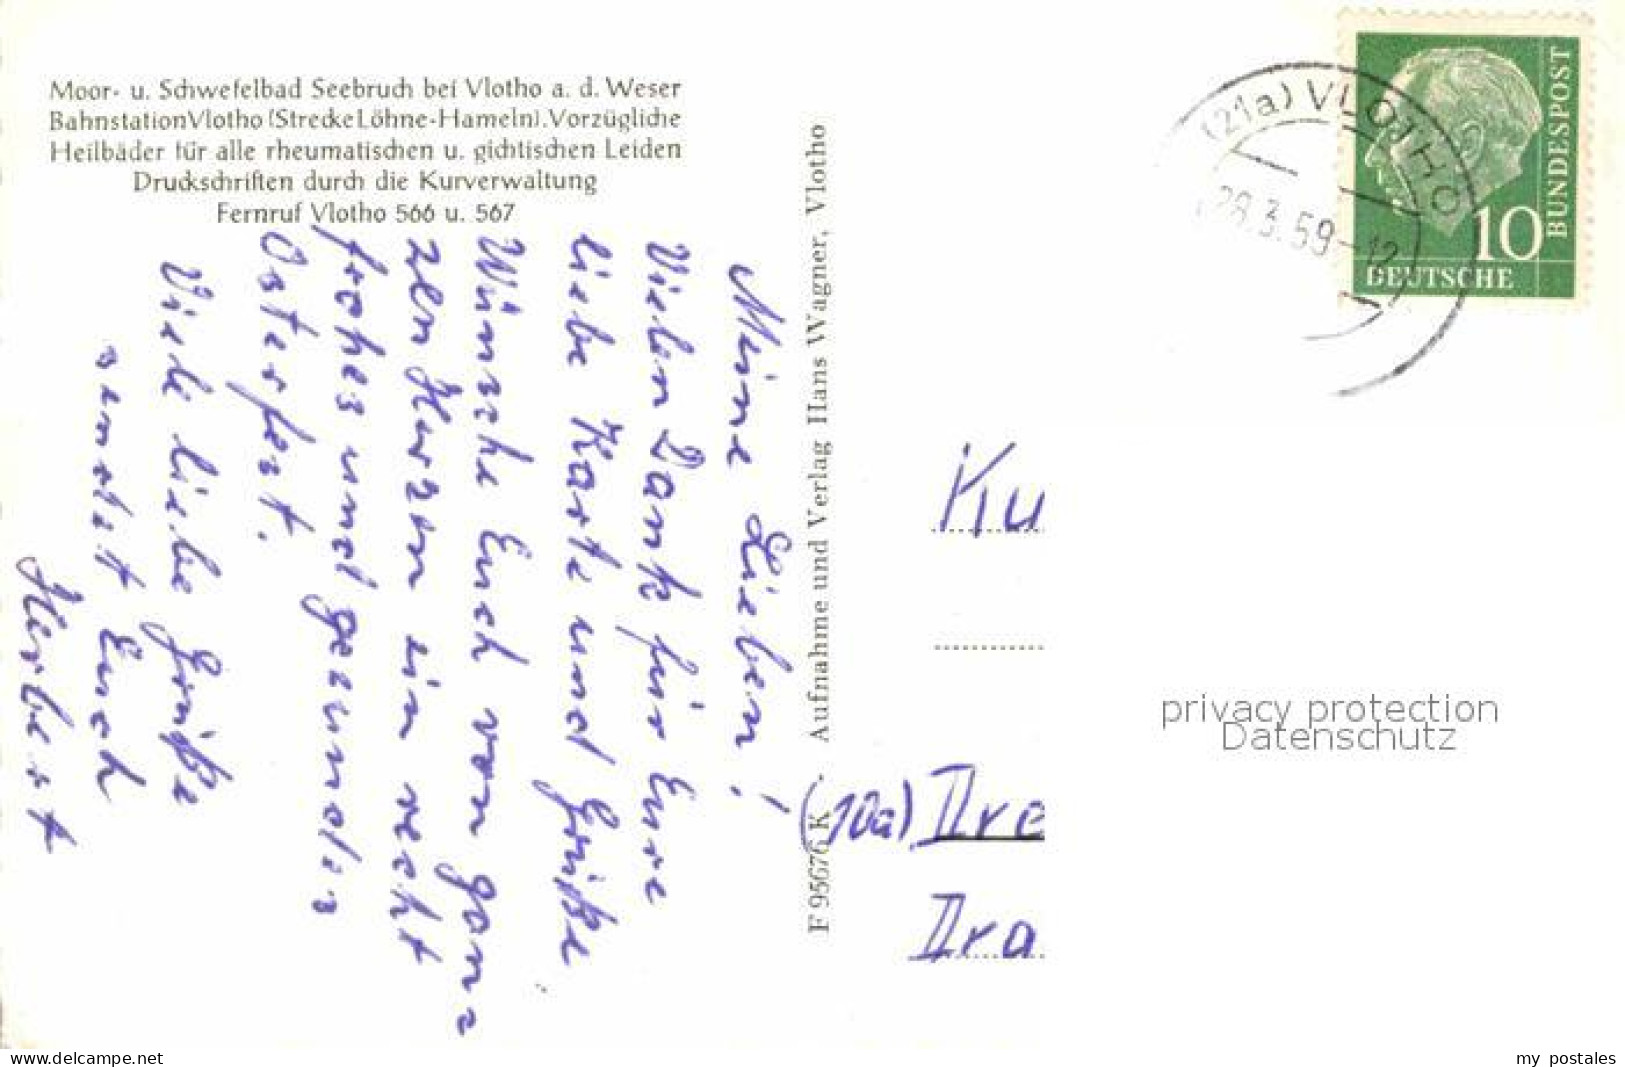 Moor- u. Schwefelbad Seebruch bei Vlotho a. d. Weser
Bahnstation Vlotho (Strecke Löhne-Hameln). Vorzügliche
Heilbäder für alle rheumatischen u. gichtischen Leiden
Druckschriften durch die Kurverwaltung
Fernruf Vlotho 566 u. 567
Meine Lieben!
Vielen Dank für Eure
liebe Karte und Grüße
Wünsche Euch von ganz
zen Herzen ein recht
frohes und gesundes
Osterfest.
Viele liebe Grüße
sendet Euch
Herbert
F 95676 K - Aufnahme und Verlag Hans Wagner, Vlotho
(21a) VLOTHO
28.3.59-12
10
BUNDESPOST
DEUTSCHE
Ku
(10a) Dre
Dra
privacy protection
Datenschutz
www.delcampe.net
my postales